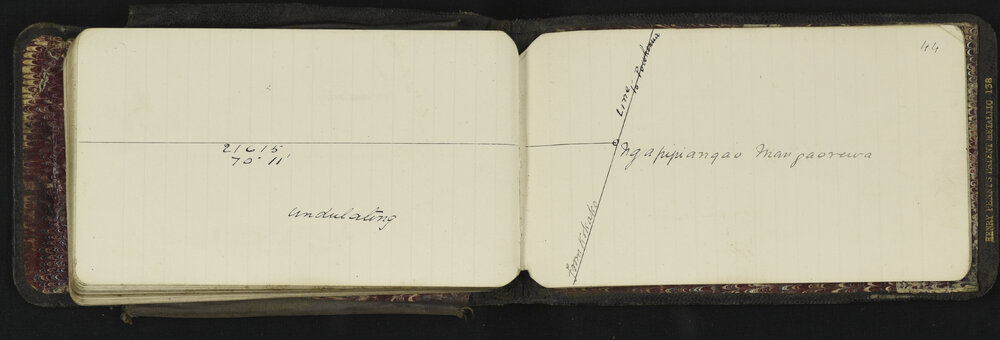 21615
70° 11'
undulating
44
Line
to
Ngapipiangao Mangaorewa
from
HENRY PENNY'S PATENT METALLIC 138